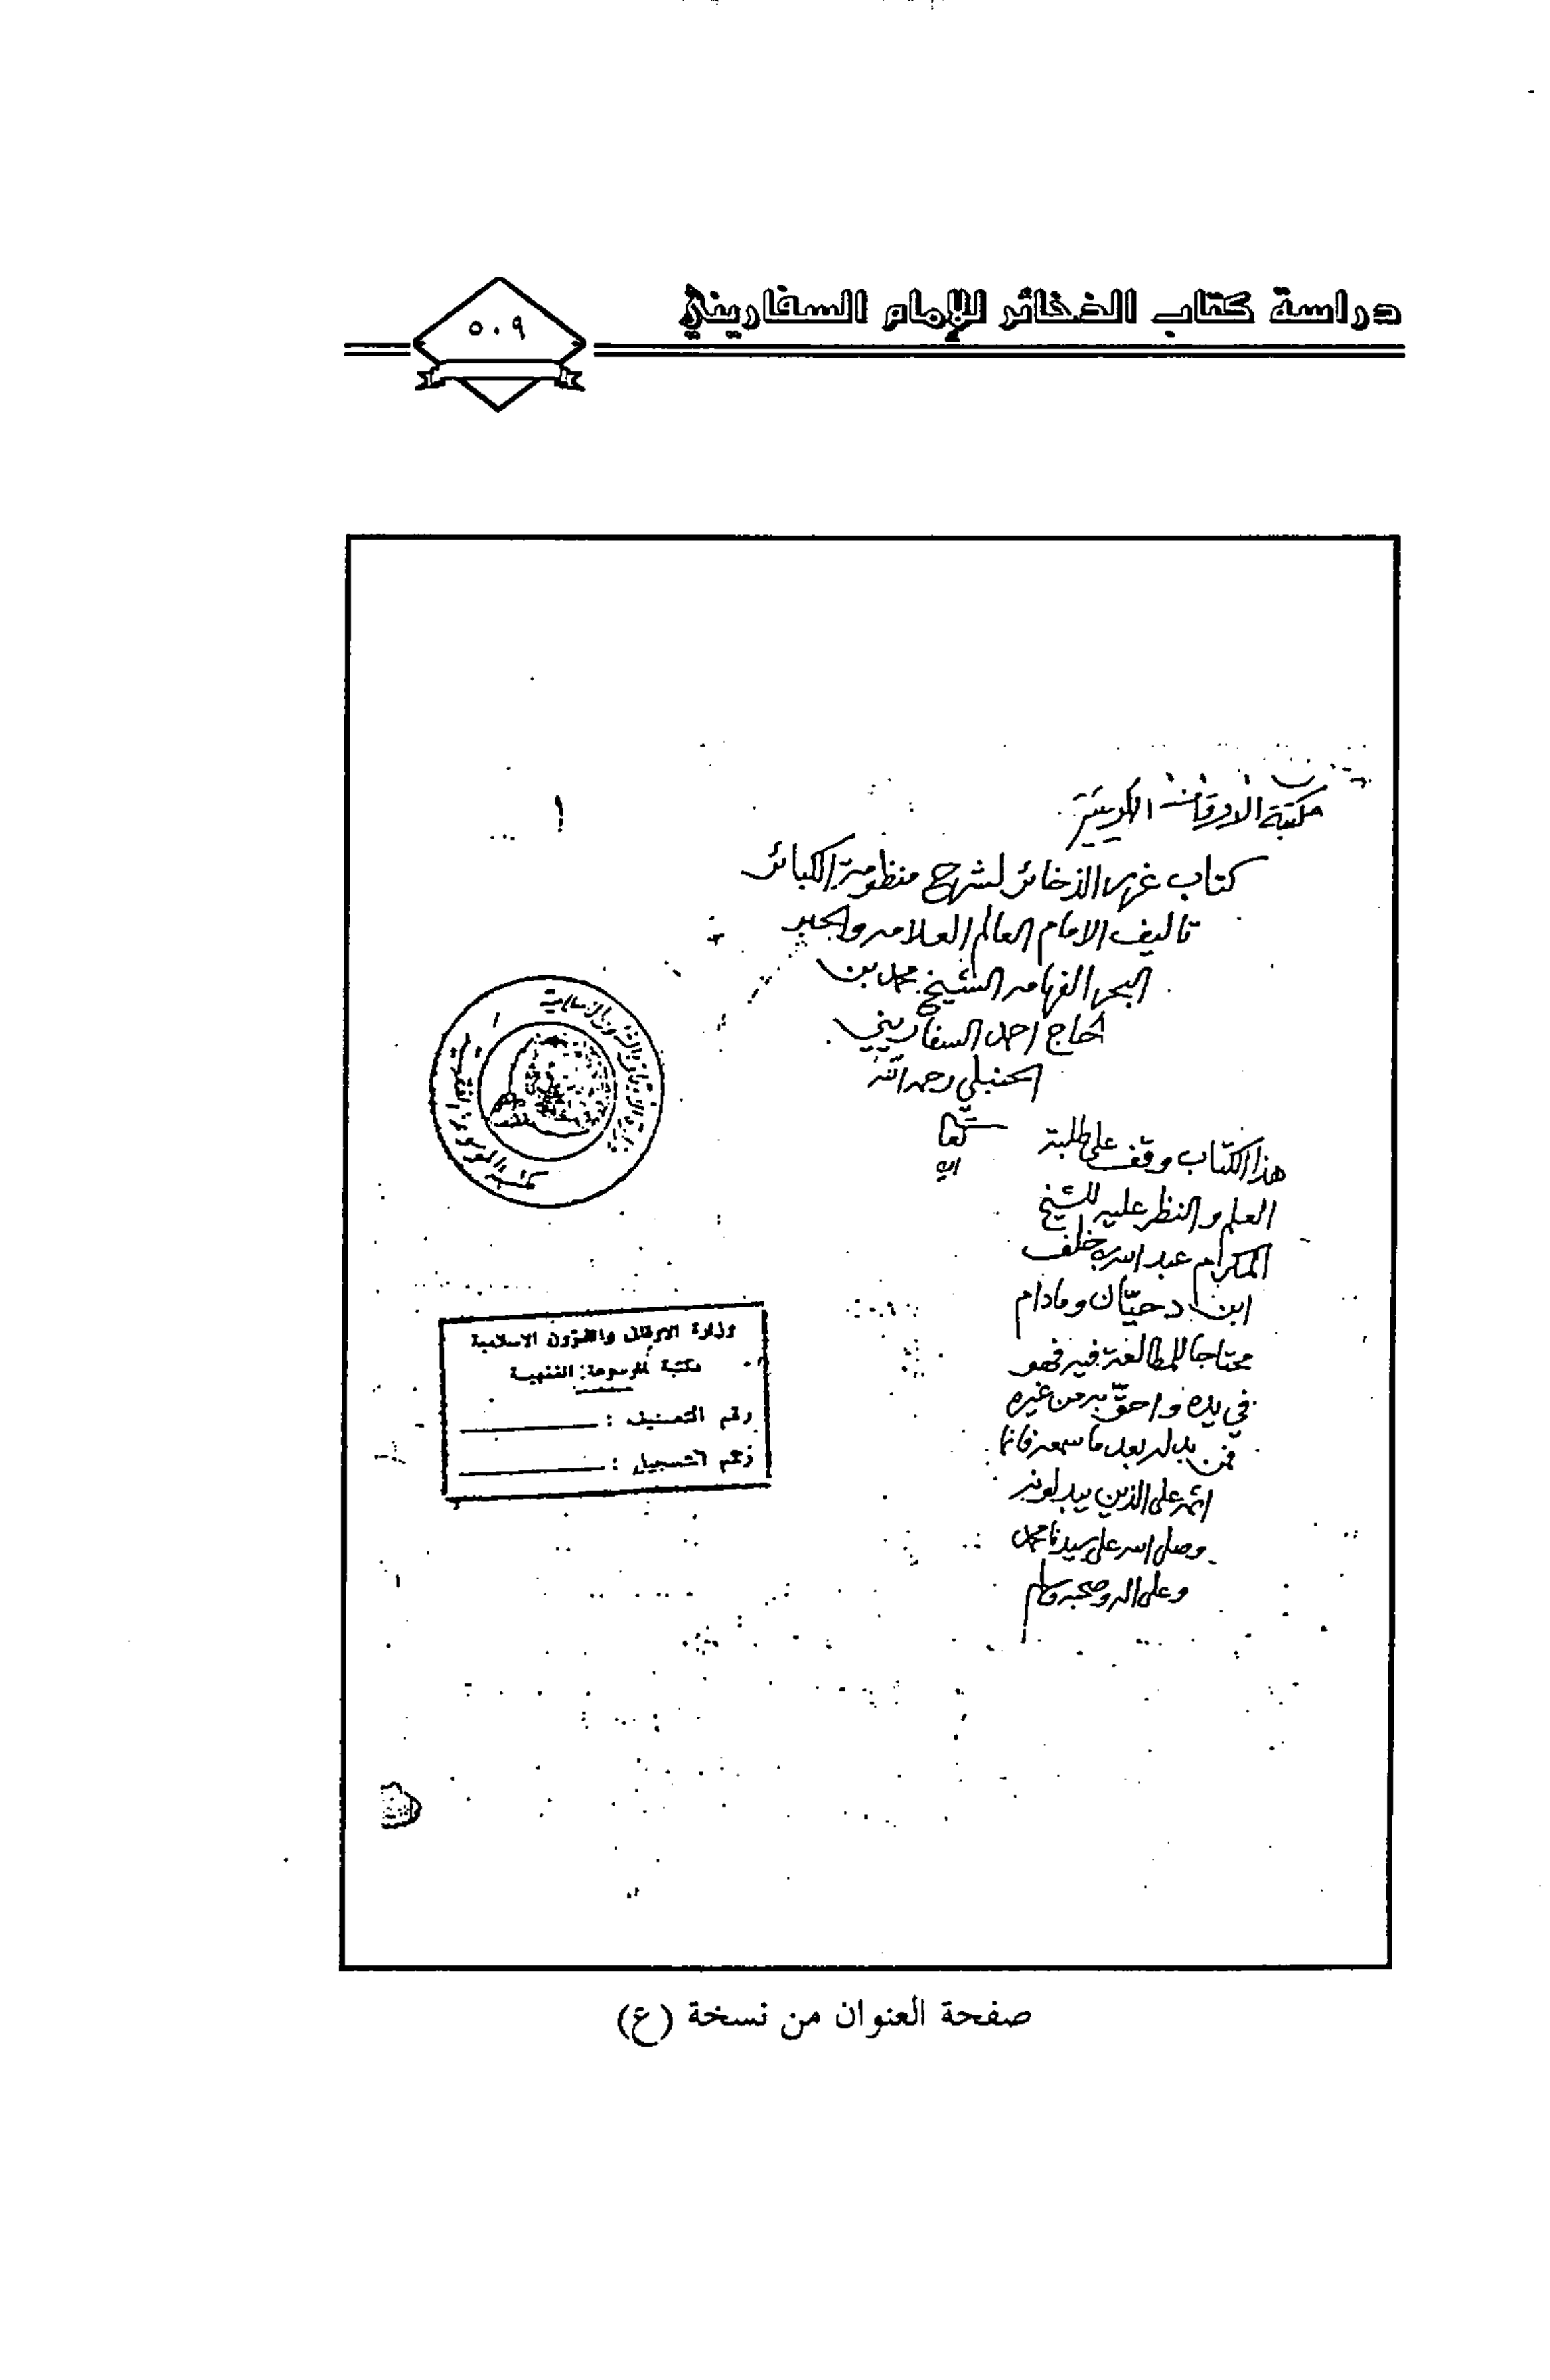 دراسة كتاب الذخائر للإمام السفاريني
٥٠٩
مكتبة الاوقاف الكويتية
١
كتاب غرر الذخائر لشرح منظومة الكبائر
تاليف الامام العالم العلامه والحبر
البحر الفهامه الشيخ محمد بن
الحاج احمد السفاريني
الحنبلي رحمه الله
تعالى
هذا الكتاب وقف على طلبة
العلم والنظر عليه للشيخ
المكرم عبد الله خلف
ابن دحيّان ومادام
محتاجا للمطالعة فيه فهو
في يده واحقّ به من غيره
فمن بدله بعد ما سمعه فانما
اثمه على الذين يبدلونه
وصلى الله على سيدنا محمد
وعلى اله وصحبه وسلم
وزارة الاوقاف والشؤون الاسلامية
مكتبة الموسوعة الفقهية
وزارة الاوقاف والشؤون الاسلامية
مكتبة الموسوعة الفقهية
رقم التصنيف :
رقم التسجيل :
صفحة العنوان من نسخة (ع)